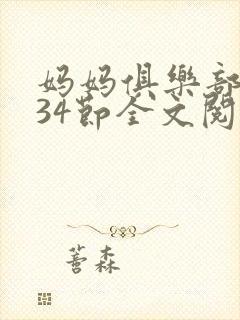 妈妈俱樂部
34節全文閱
薯森